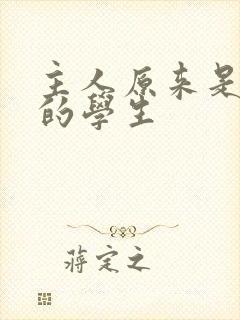 主人原来是
的學生
蔣定之